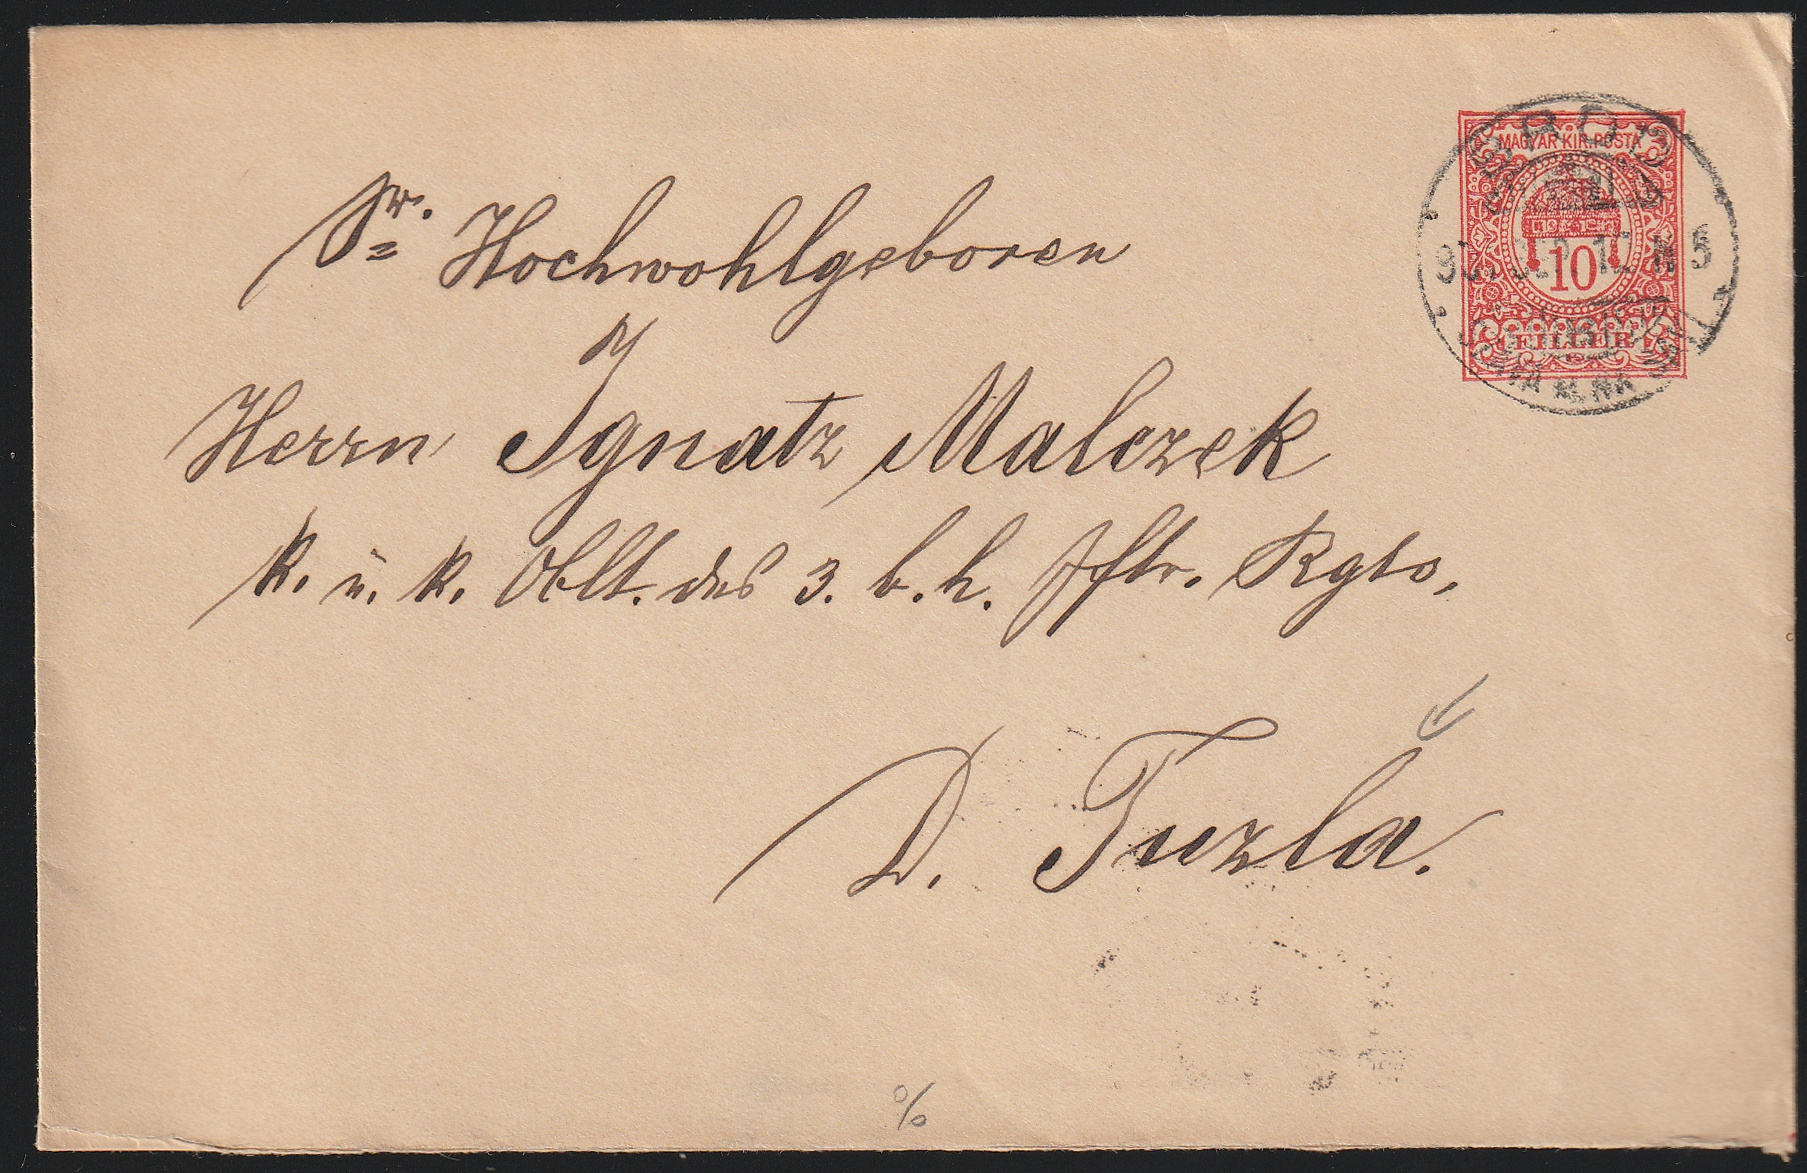 Sr. Hochwohlgeboren
Herrn Ignatz Malczek
k. u. k. Oblt. des 3. b. h. Jftr. Rgts,
D. Tuzla.
MAGYAR KIR. POSTA
10
FILLER
BROD